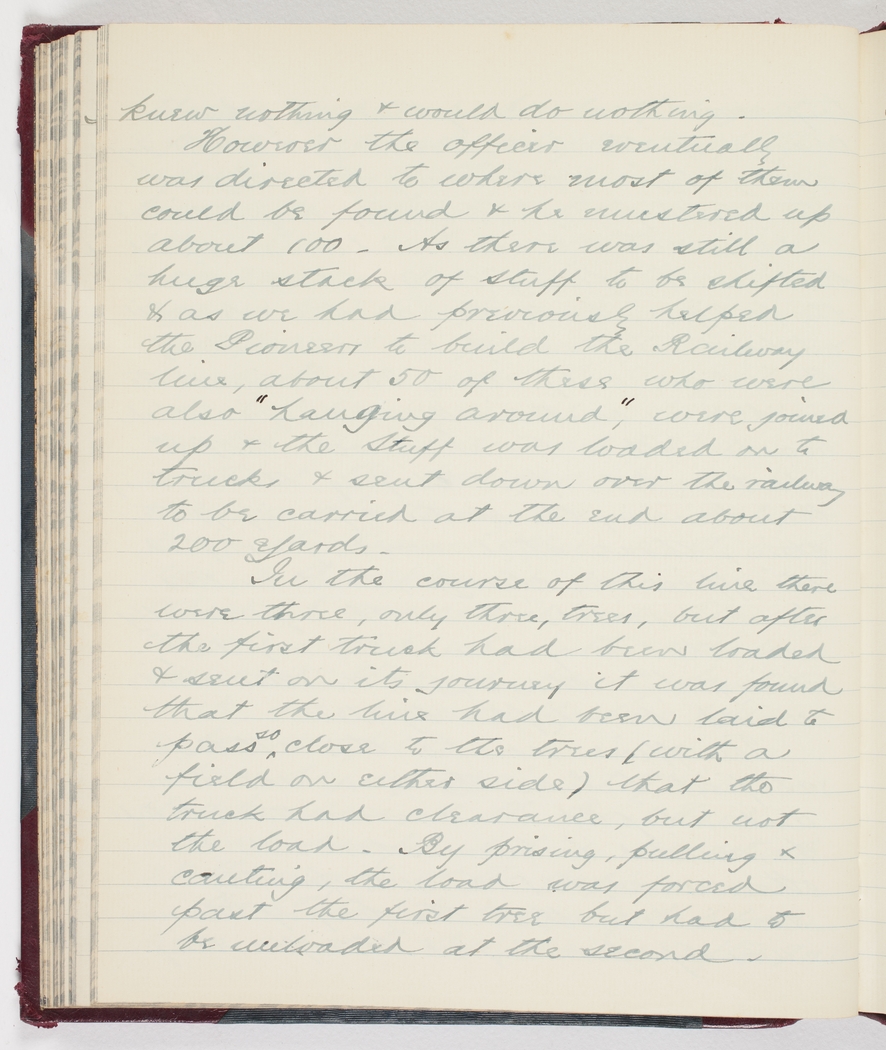 knew nothing & would do nothing.
However the officer eventually
was directed to where most of them
could be found & he mustered up
about 100 - As there was still a
huge stack of stuff to be shifted
& as we had previously helped
the Pioneers to build the Railway
line, about 50 of these who were
also "hanging around," were joined
up & the stuff was loaded on to
trucks & sent down over the railway
to be carried at the end about
200 yards -
In the course of this line there
were three, only three, trees, but after
the first truck had been loaded
& sent on its journey it was found
that the line had been laid to
pass so close to the trees (with a
field on either side) that the
truck had clearance, but not
the load - By prising, pulling &
canting, the load was forced
past the first tree but had to
be unloaded at the second -